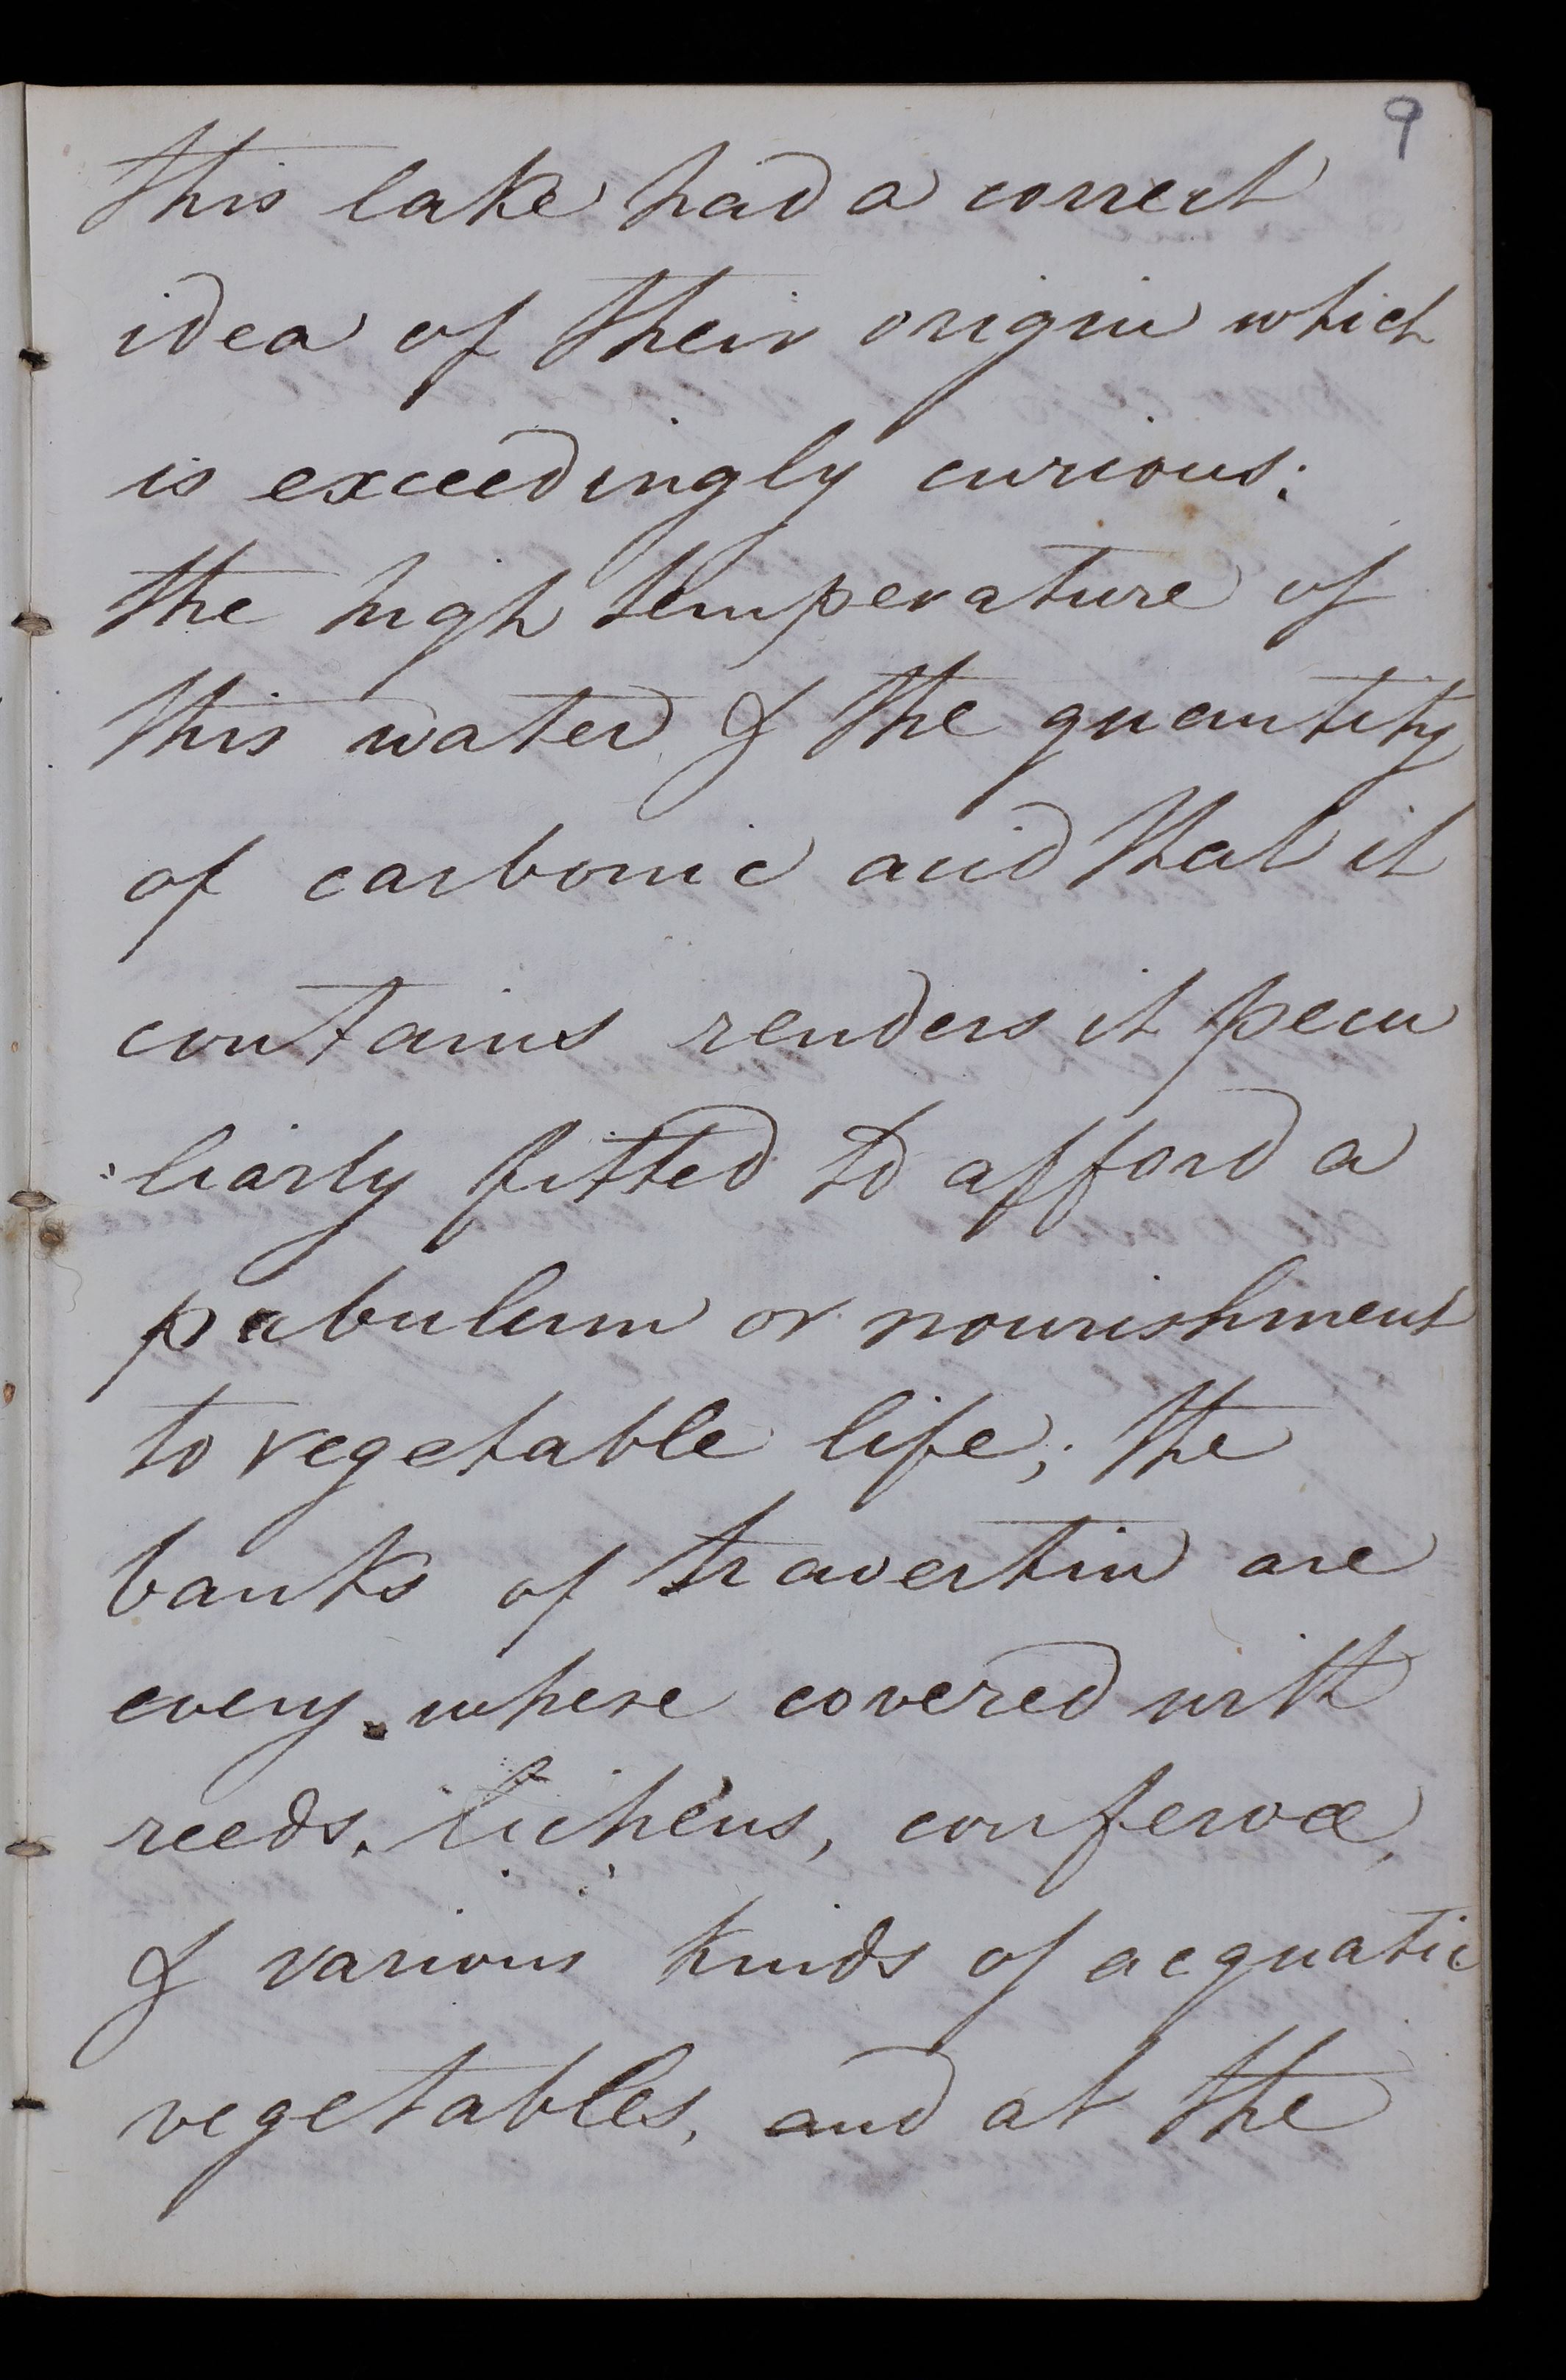 9
this lake had a correct
idea of their origin which
is exceedingly curious:
the high temperature of
this water & the quantity
of carbonic acid that it
contains renders it pecu
:liarly fitted to afford a
pabulum or nourishment
to vegetable life; the
banks of travertin are
every where covered with
reeds, lichens, confervæ,
& various kinds of acquatic
vegetables, and at the